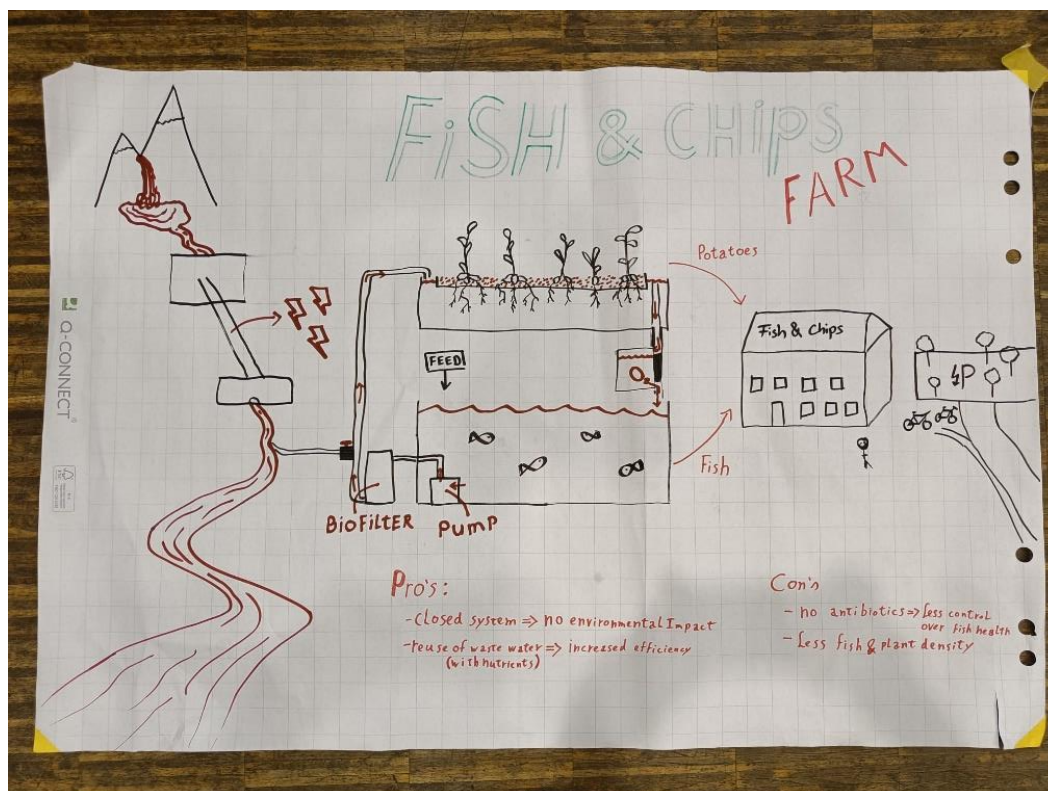 FiSH & CHiPS
FARM
Potatoes
Fish & Chips
FEED
O₂
4P
Q-CONNECT®
Fish
BioFiLTER
PumP
Pro's:
- closed system ⇒ no environmental Impact
- reuse of waste water ⇒ increased efficiency
(with nutrients)
Con's
- no antibiotics ⇒ less control
over fish health
- Less fish & plant density